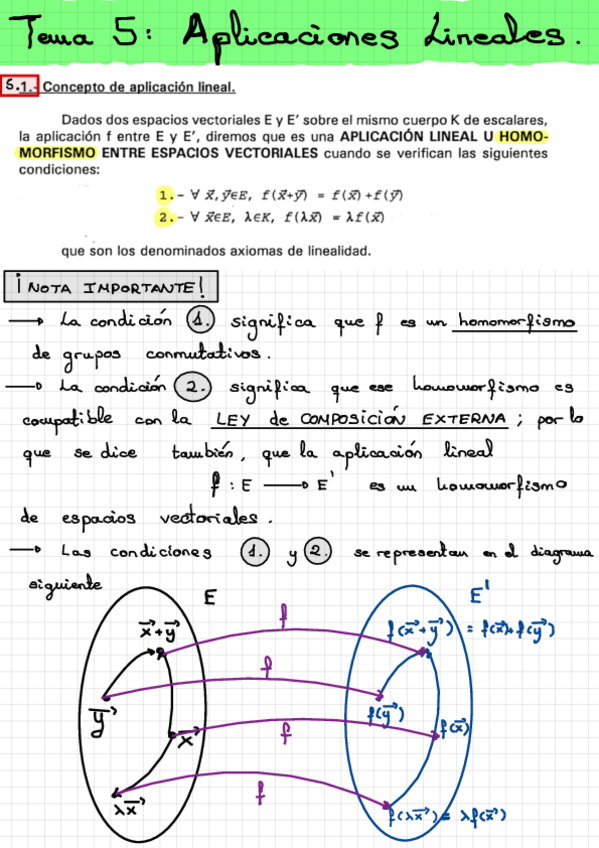 Tema 5: Aplicaciones Lineales.
5.1.- Concepto de aplicación lineal.
Dados dos espacios vectoriales E y E' sobre el mismo cuerpo K de escalares,
la aplicación f entre E y E', diremos que es una APLICACIÓN LINEAL U HOMO-
MORFISMO ENTRE ESPACIOS VECTORIALES cuando se verifican las siguientes
condiciones:
1.- ∀ x⃗,y⃗∈E, f(x⃗+y⃗) = f(x⃗)+f(y⃗)
2.- ∀ x⃗∈E, λ∈K, f(λx⃗) = λf(x⃗)
que son los denominados axiomas de linealidad.
¡NOTA IMPORTANTE!
→ La condición 1. significa que f es un homomorfismo
de grupos conmutativos.
→ La condición 2. significa que ese homomorfismo es
compatible con la LEY de COMPOSICIÓN EXTERNA; por lo
que se dice también, que la aplicación lineal
f : E → E' es un homomorfismo
de espacios vectoriales.
→ Las condiciones 1. y 2. se representan en el diagrama
siguiente
E E'
x⃗+y⃗ f f(x⃗+y⃗) = f(x⃗)+f(y⃗)
f
y⃗ f(y⃗)
x⃗ f f(x⃗)
λx⃗ f f(λx⃗) = λf(x⃗)